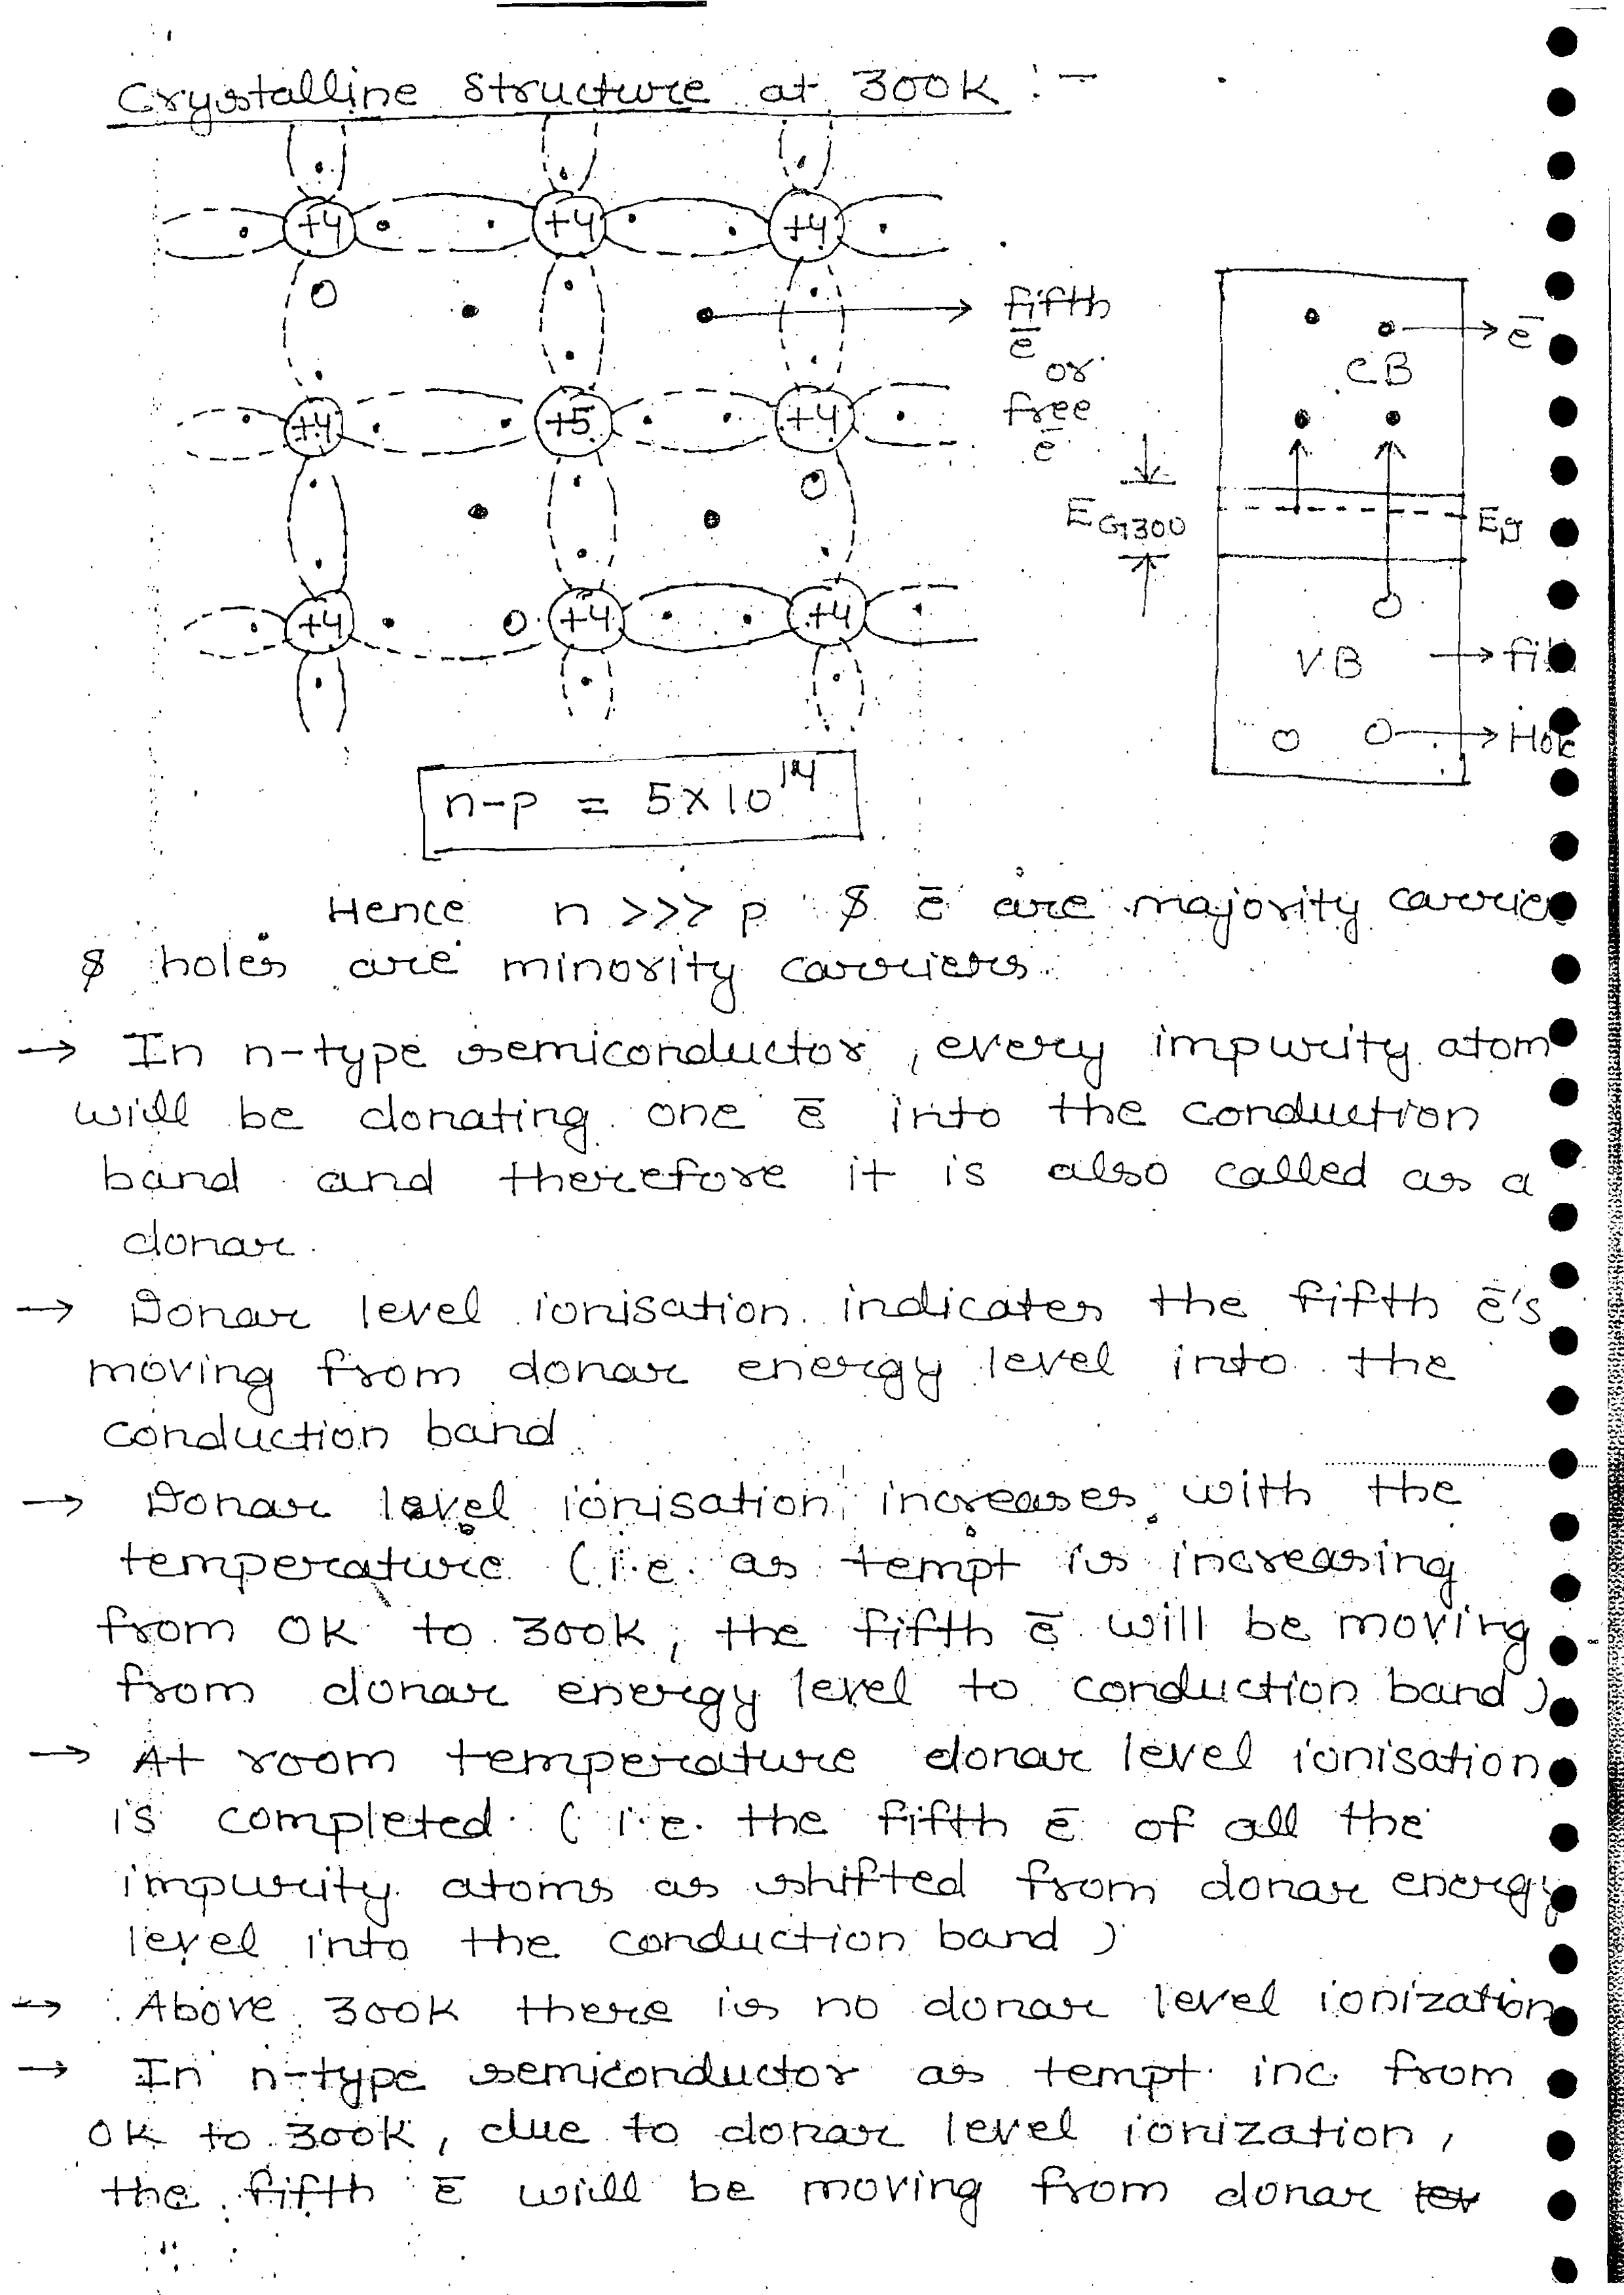 Crystalline Structure at 300K :-
+4 +4 +4
fifth
ē
or
free
ē
+4 +5 +4
+4 +4 +4
ē
CB
EG300
ED
VB
n-p = 5×10¹⁴
Hence n >>> p & ē are majority
& holes are minority carriers.
→ In n-type semiconductor, every impurity atom
will be donating one ē into the conduction
band and therefore it is also called as a
donar.
→ Donar level ionisation indicates the fifth ē's
moving from donar energy level into the
conduction band
→ Donar level ionisation increases with the
temperature (i.e. as tempt is increasing
from 0K to 300K, the fifth ē will be moving
from donar energy level to conduction band)
→ At room temperature donar level ionisation
is completed. (i.e. the fifth ē of all the
impurity atoms as shifted from donar energy
level into the conduction band)
→ Above 300K there is no donar level ionization
→ In n-type semiconductor as tempt. inc. from
0K to 300K, due to donar level ionization,
the fifth ē will be moving from donar